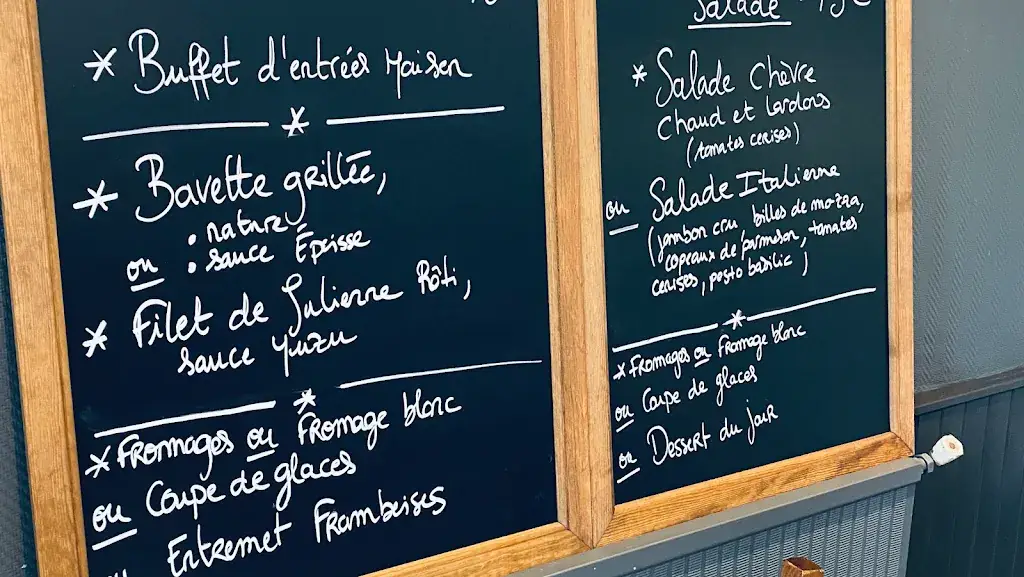 * Buffet d'entrées Maison
*
* Bavette grillée,
• nature
ou • sauce Époisse
* Filet de Julienne Rôti,
sauce yuzu
*
* Fromages ou Fromage blanc
ou Coupe de glaces
ou Entremet Framboises
Salade
* Salade Chèvre
chaud et lardons
(tomates cerises)
ou Salade Italienne
(jambon cru billes de mozza,
copeaux de parmesan, tomates
cerises, pesto basilic)
*
* Fromages ou Fromage blanc
ou Coupe de glaces
ou Dessert du jour